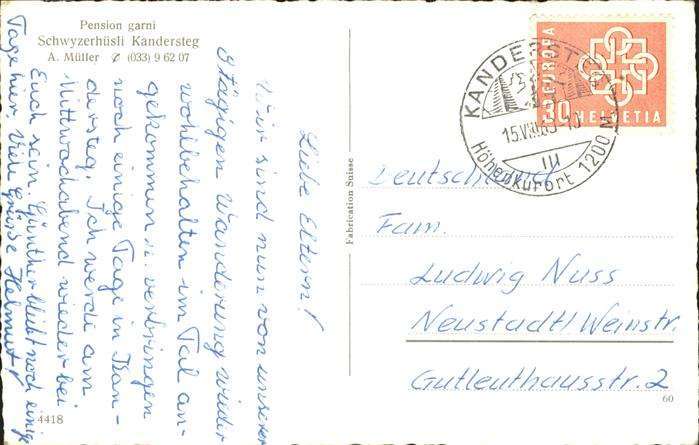 Pension garni
Schwyzerhüsli Kandersteg
A. Müller (033) 9 62 07
Liebe Eltern!
Wir sind nun von unserer
8tägigen Wanderung wieder
wohlbehalten im Tal an-
gekommen u. verbringen
noch einige Tage in Kan-
dersteg. Ich werde am
Mittwochabend wieder bei
Euch sein. Günther bleibt noch einige
Tage hier. Viele Grüße Helmut
4418
Fabrication Suisse
EUROPA
30 HELVETIA
KANDERSTEG
15.VIII.63-10
III
Höhenkurort 1200 M
Deutschland
Fam.
Ludwig Nuss
Neustadt/Weinstr.
Gutleuthausstr. 2
60